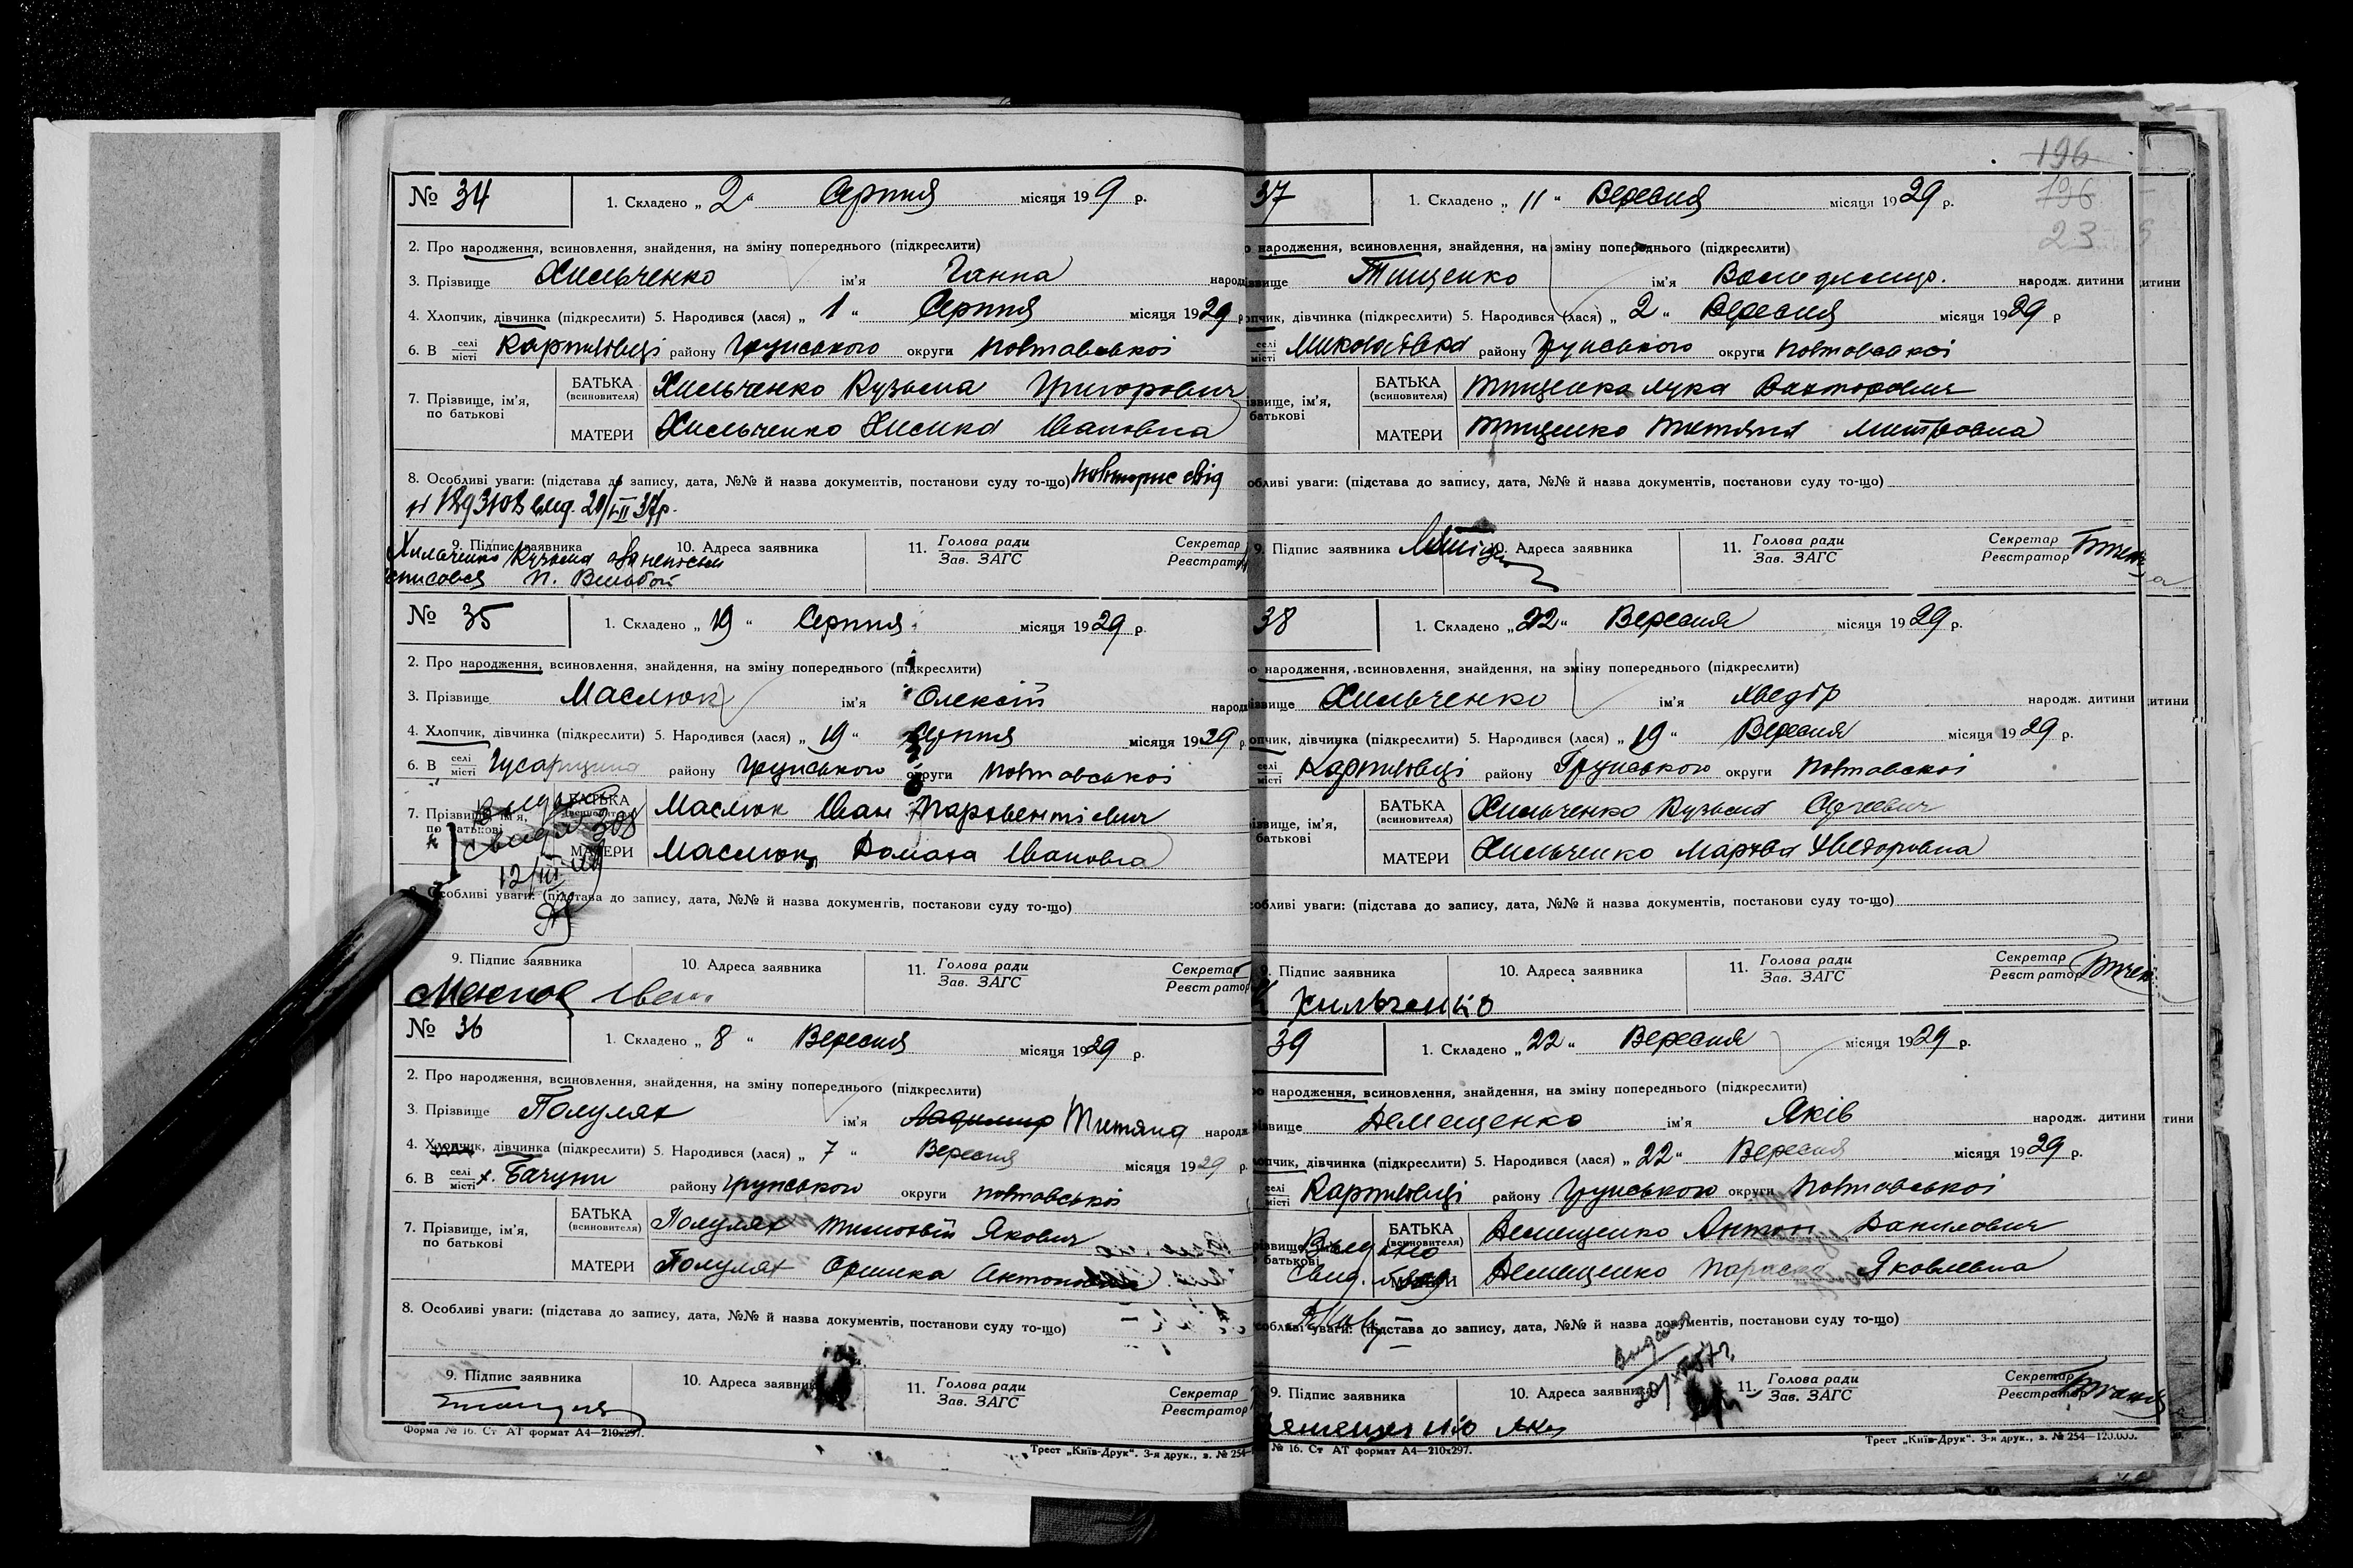 № 34
1. Складено „ 2 “ Серпня місяця 19 9 р.
2. Про народження, всиновлення, знайдення, на зміну попереднього (підкреслити)
3. Прізвище Хильченко ім'я Ганна народ
4. Хлопчик, дівчинка (підкреслити) 5. Народився (лася) „ 1 “ Серпня місяця 1929 р
6. В селі місті Карпилівці району Грунського округи Полтавської
7. Прізвище, ім'я, по батькові
БАТЬКА (всиновителя) Хильченко Кузьма Григорович
МАТЕРИ Хильченко Химка Івановна
8. Особливі уваги: (підстава до запису, дата, №№ й назва документів, постанови суду то-що)
9. Підпис заявника 10. Адреса заявника 11. Голова ради Зав. ЗАГС Секретар Реєстратор
Хильченко Кузьма
№ 35
1. Складено „ 19 “ Серпня місяця 1929 р.
2. Про народження, всиновлення, знайдення, на зміну попереднього (підкреслити)
3. Прізвище Маслюк ім'я Олексій народ
4. Хлопчик, дівчинка (підкреслити) 5. Народився (лася) „ 19 “ Серпня місяця 1929 р.
6. В селі місті Гусарщина району Грунського округи Полтавської
7. Прізвище, ім'я, по батькові
БАТЬКА Маслюк Іван
МАТЕРИ Маслюк Домаха Івановна
8. Особливі уваги: (підстава до запису, дата, №№ й назва документів, постанови суду то-що)
9. Підпис заявника 10. Адреса заявника 11. Голова ради Зав. ЗАГС Секретар Реєстратор
№ 36
1. Складено „ 8 “ Вересня місяця 1929 р.
2. Про народження, всиновлення, знайдення, на зміну попереднього (підкреслити)
3. Прізвище Полулях ім'я Титяна народж
4. Хлопчик, дівчинка (підкреслити) 5. Народився (лася) „ 7 “ Вересня місяця 1929 р.
6. В селі місті х. Бачуни району Грунського округи Полтавської
7. Прізвище, ім'я, по батькові
БАТЬКА (всиновителя) Полулях Тимофій Якович
МАТЕРИ Полулях Оришка
8. Особливі уваги: (підстава до запису, дата, №№ й назва документів, постанови суду то-що)
9. Підпис заявника 10. Адреса заявника 11. Голова ради Зав. ЗАГС Секретар Реєстратор
Форма № 16. Ст АТ формат А4—210х297.
Трест „Київ-Друк“. 3-я друк., з. № 254
196
196
23
37
1. Складено „ 11 “ Вересня місяця 1929 р.
народження, всиновлення, знайдення, на зміну попереднього (підкреслити)
Тищенко ім'я Володимир. народж. дитини
дівчинка (підкреслити) 5. Народився (лася) „ 2 “ Вересня місяця 1929 р
селі місті Миколаївка району Грунського округи Полтавської
БАТЬКА (всиновителя) Тищенка Лука
МАТЕРИ Тищенко Тетяна
уваги: (підстава до запису, дата, №№ й назва документів, постанови суду то-що)
9. Підпис заявника 10. Адреса заявника 11. Голова ради Зав. ЗАГС Секретар Реєстратор
38
1. Складено „ 22 “ Вересня місяця 1929 р.
народження, всиновлення, знайдення, на зміну попереднього (підкреслити)
Хильченко ім'я Хведір народж. дитини
дівчинка (підкреслити) 5. Народився (лася) „ 19 “ Вересня місяця 1929 р.
селі місті Карпилівці району Грунського округи Полтавскої
БАТЬКА (всиновителя) Хильченко Кузьма
МАТЕРИ Хильченко Марфа Хведоровна
уваги: (підстава до запису, дата, №№ й назва документів, постанови суду то-що)
9. Підпис заявника 10. Адреса заявника 11. Голова ради Зав. ЗАГС Секретар Реєстратор
Хильченко
39
1. Складено „ 22 “ Вересня місяця 1929 р.
народження, всиновлення, знайдення, на зміну попереднього (підкреслити)
Демещенко ім'я Яків народж. дитини
дівчинка (підкреслити) 5. Народився (лася) „ 22 “ Вересня місяця 1929 р.
селі місті Карпилівці району Грунського округи Полтавської
БАТЬКА (всиновителя) Демещенко Антон Данилович
МАТЕРИ Демещенко Параска Яковлевна
уваги: (підстава до запису, дата, №№ й назва документів, постанови суду то-що)
9. Підпис заявника 10. Адреса заявника 11. Голова ради Зав. ЗАГС Секретар Реєстратор
№ 16. Ст АТ формат А4—210х297.
Трест „Київ-Друк“. 3-я друк., з. № 254—120.000.